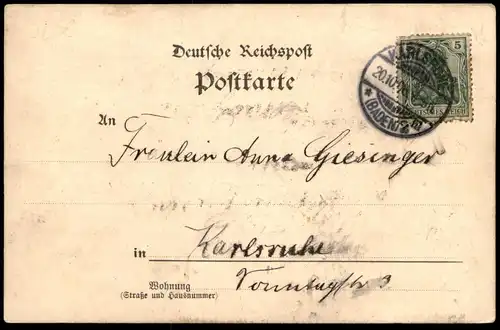 Deutsche Reichspost
Postkarte
5
KARLSRUHE
20.10.
* (BADEN) 2.
An
Fräulein Anna Giesinger
in Karlsruhe
Wohnung
(Straße und Hausnummer)
3